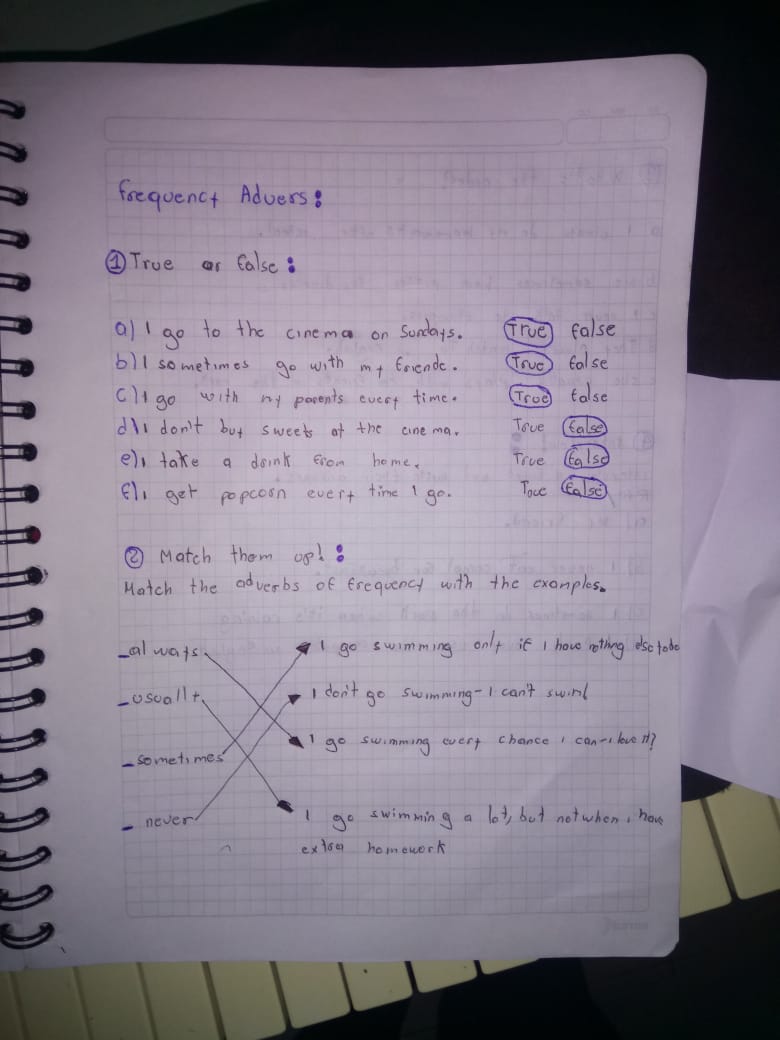 Frequenct Advers:
① True or false:
a) I go to the cinema on Sundays. True false
b) I sometimes go with my friends. True false
c) I go with my parents every time. True false
d) I don't buy sweets at the cinema. True false
e) I take a drink from home. True false
f) I get popcorn every time I go. True false
② Match them up!:
Match the adverbs of frequency with the examples.
- always
I go swimming only if I have nothing else to do
- usually
I don't go swimming - I can't swim!
I go swimming every chance I can - I love it?
- sometimes
- never
I go swimming a lot, but not when i have
extra homework